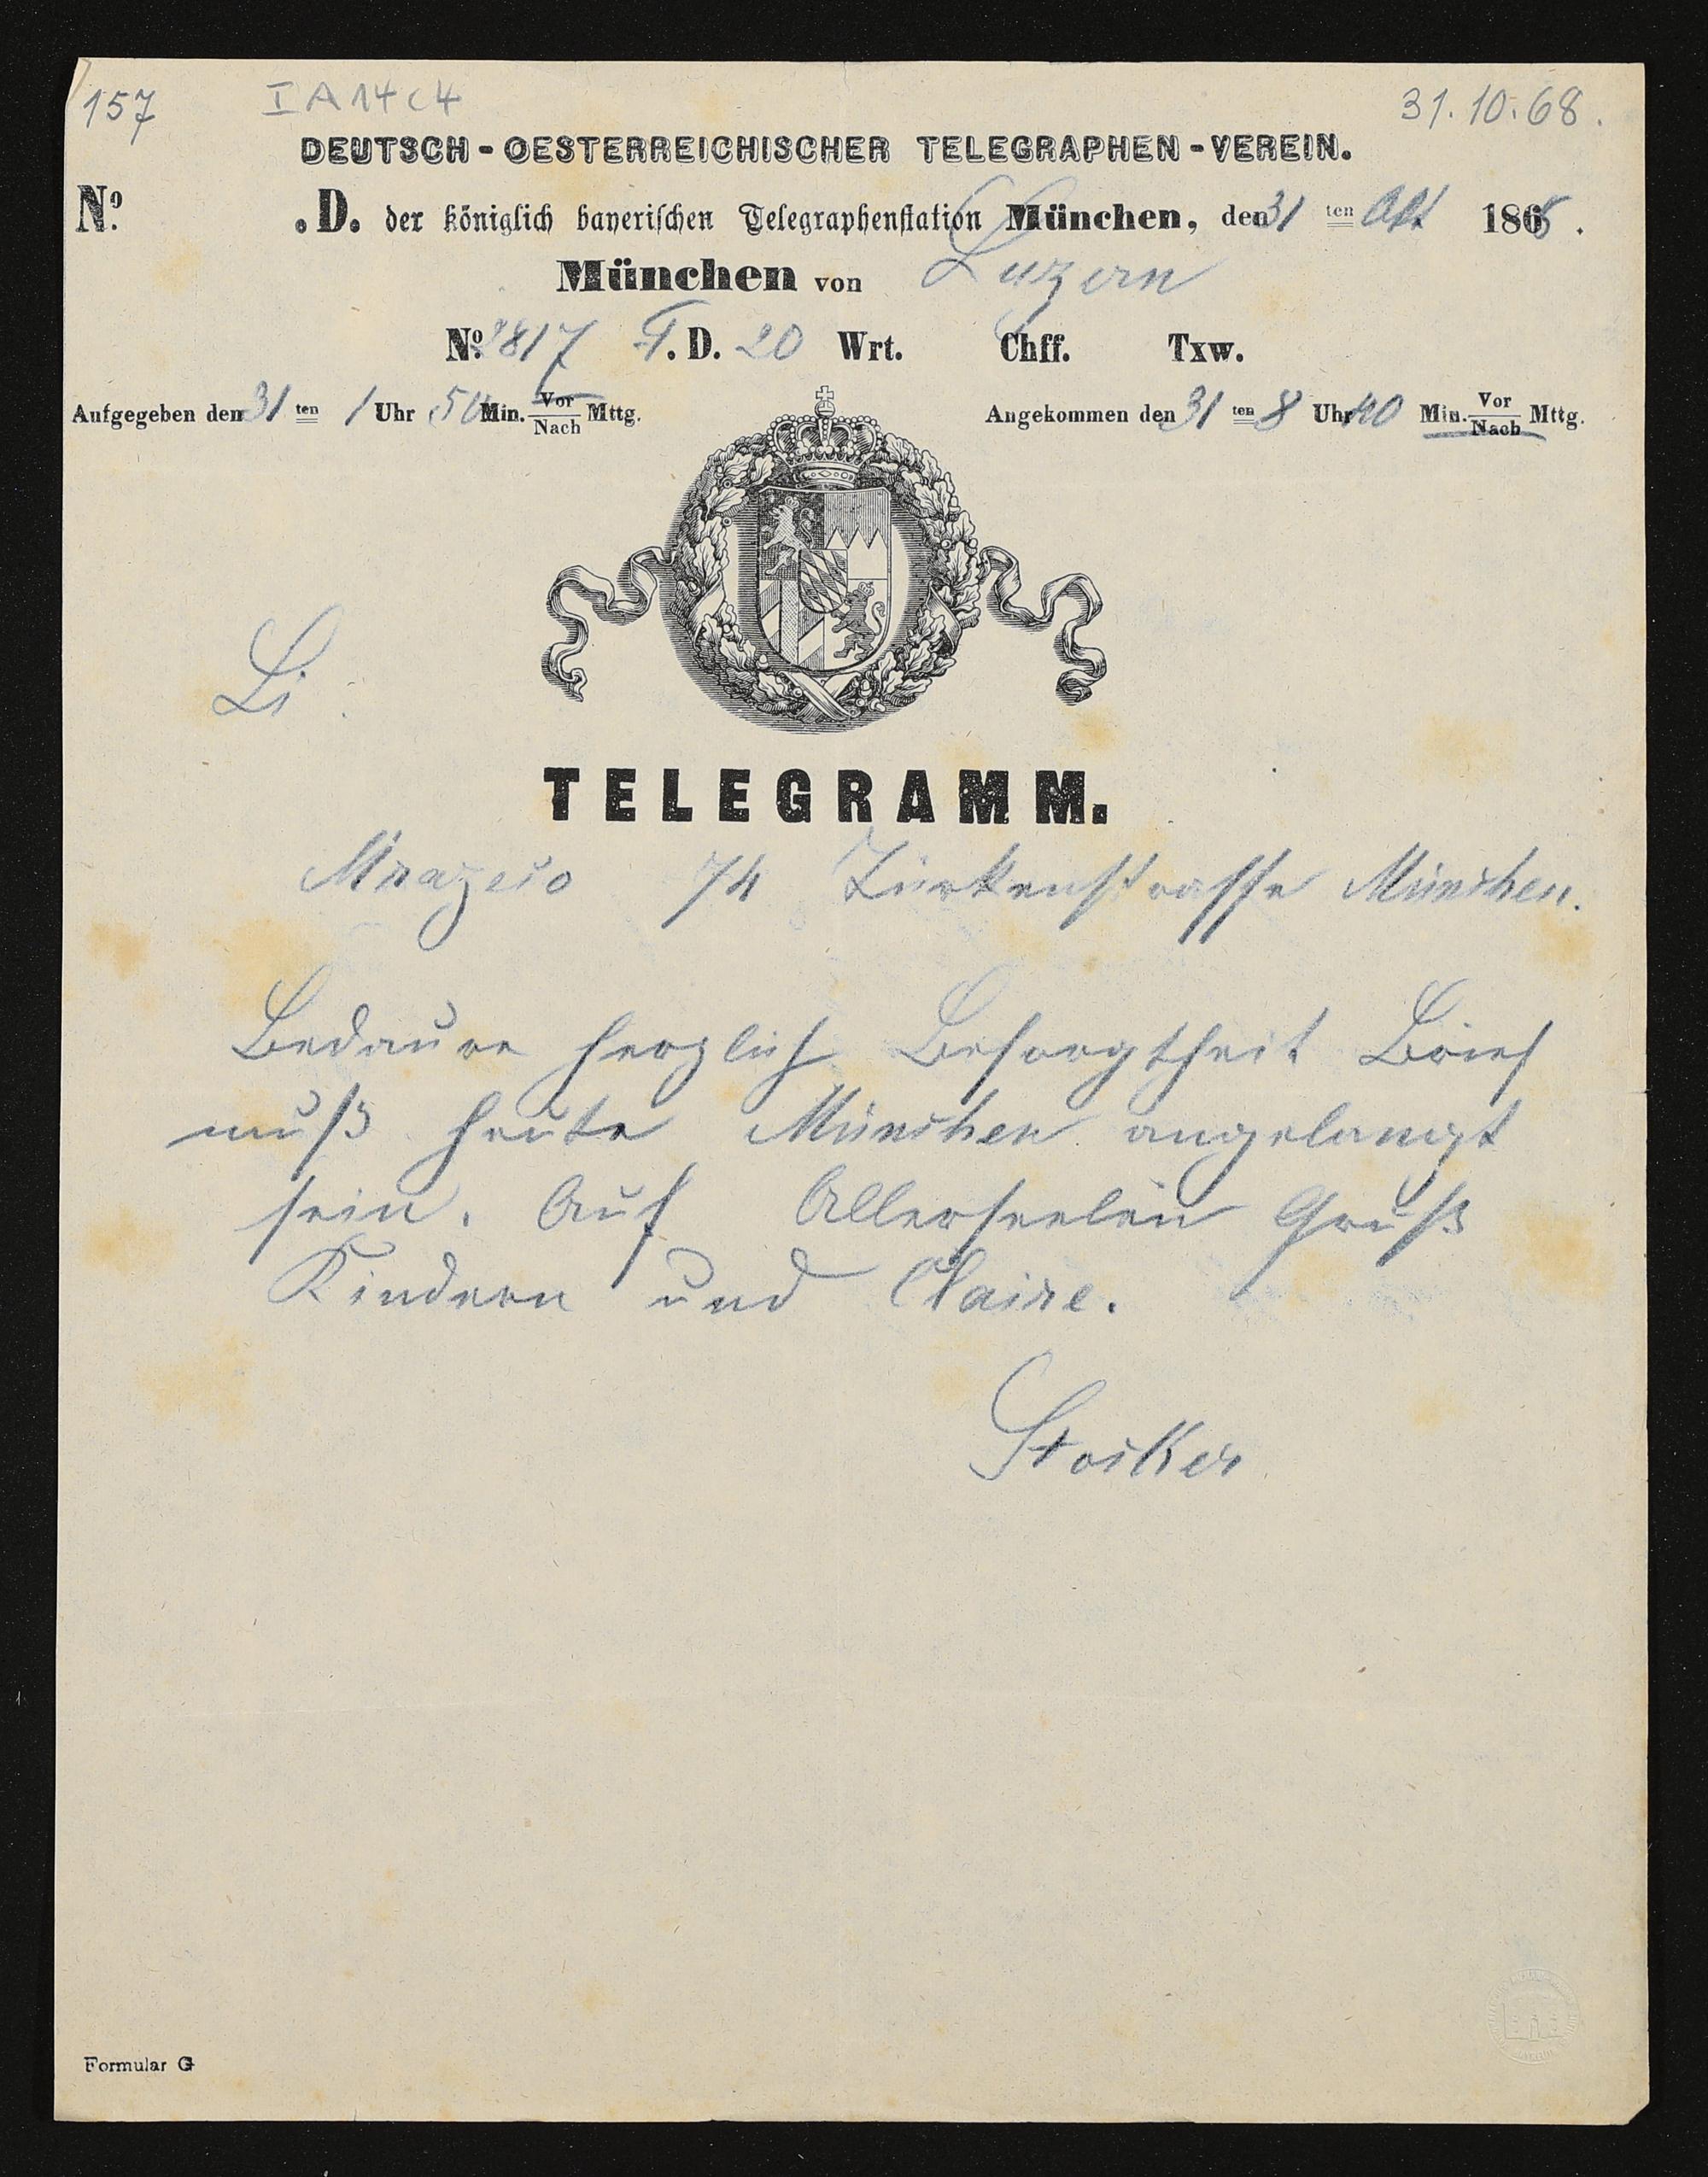 157 I A 14 c 4 31.10.68.
DEUTSCH-OESTERREICHISCHER TELEGRAPHEN-VEREIN.
No. .D. der königlich bayerischen Telegraphenstation München, den 31 ten Okt 1868.
München von Luzern
No. 817 T. D. 20 Wrt. Chff. Txw.
Aufgegeben den 31 ten 1 Uhr 50 Min. Vor/Nach Mttg. Angekommen den 31 ten 8 Uhr 40 Min. Vor/Nach Mttg.
Li
TELEGRAMM.
74 Türkenstrasse München.
Bedaure herzlich Besorgtheit Brief
muß heute München angelangt
sein. Auf Allerseelen Gruß
Kindern und Claire.
Stocker
Formular G